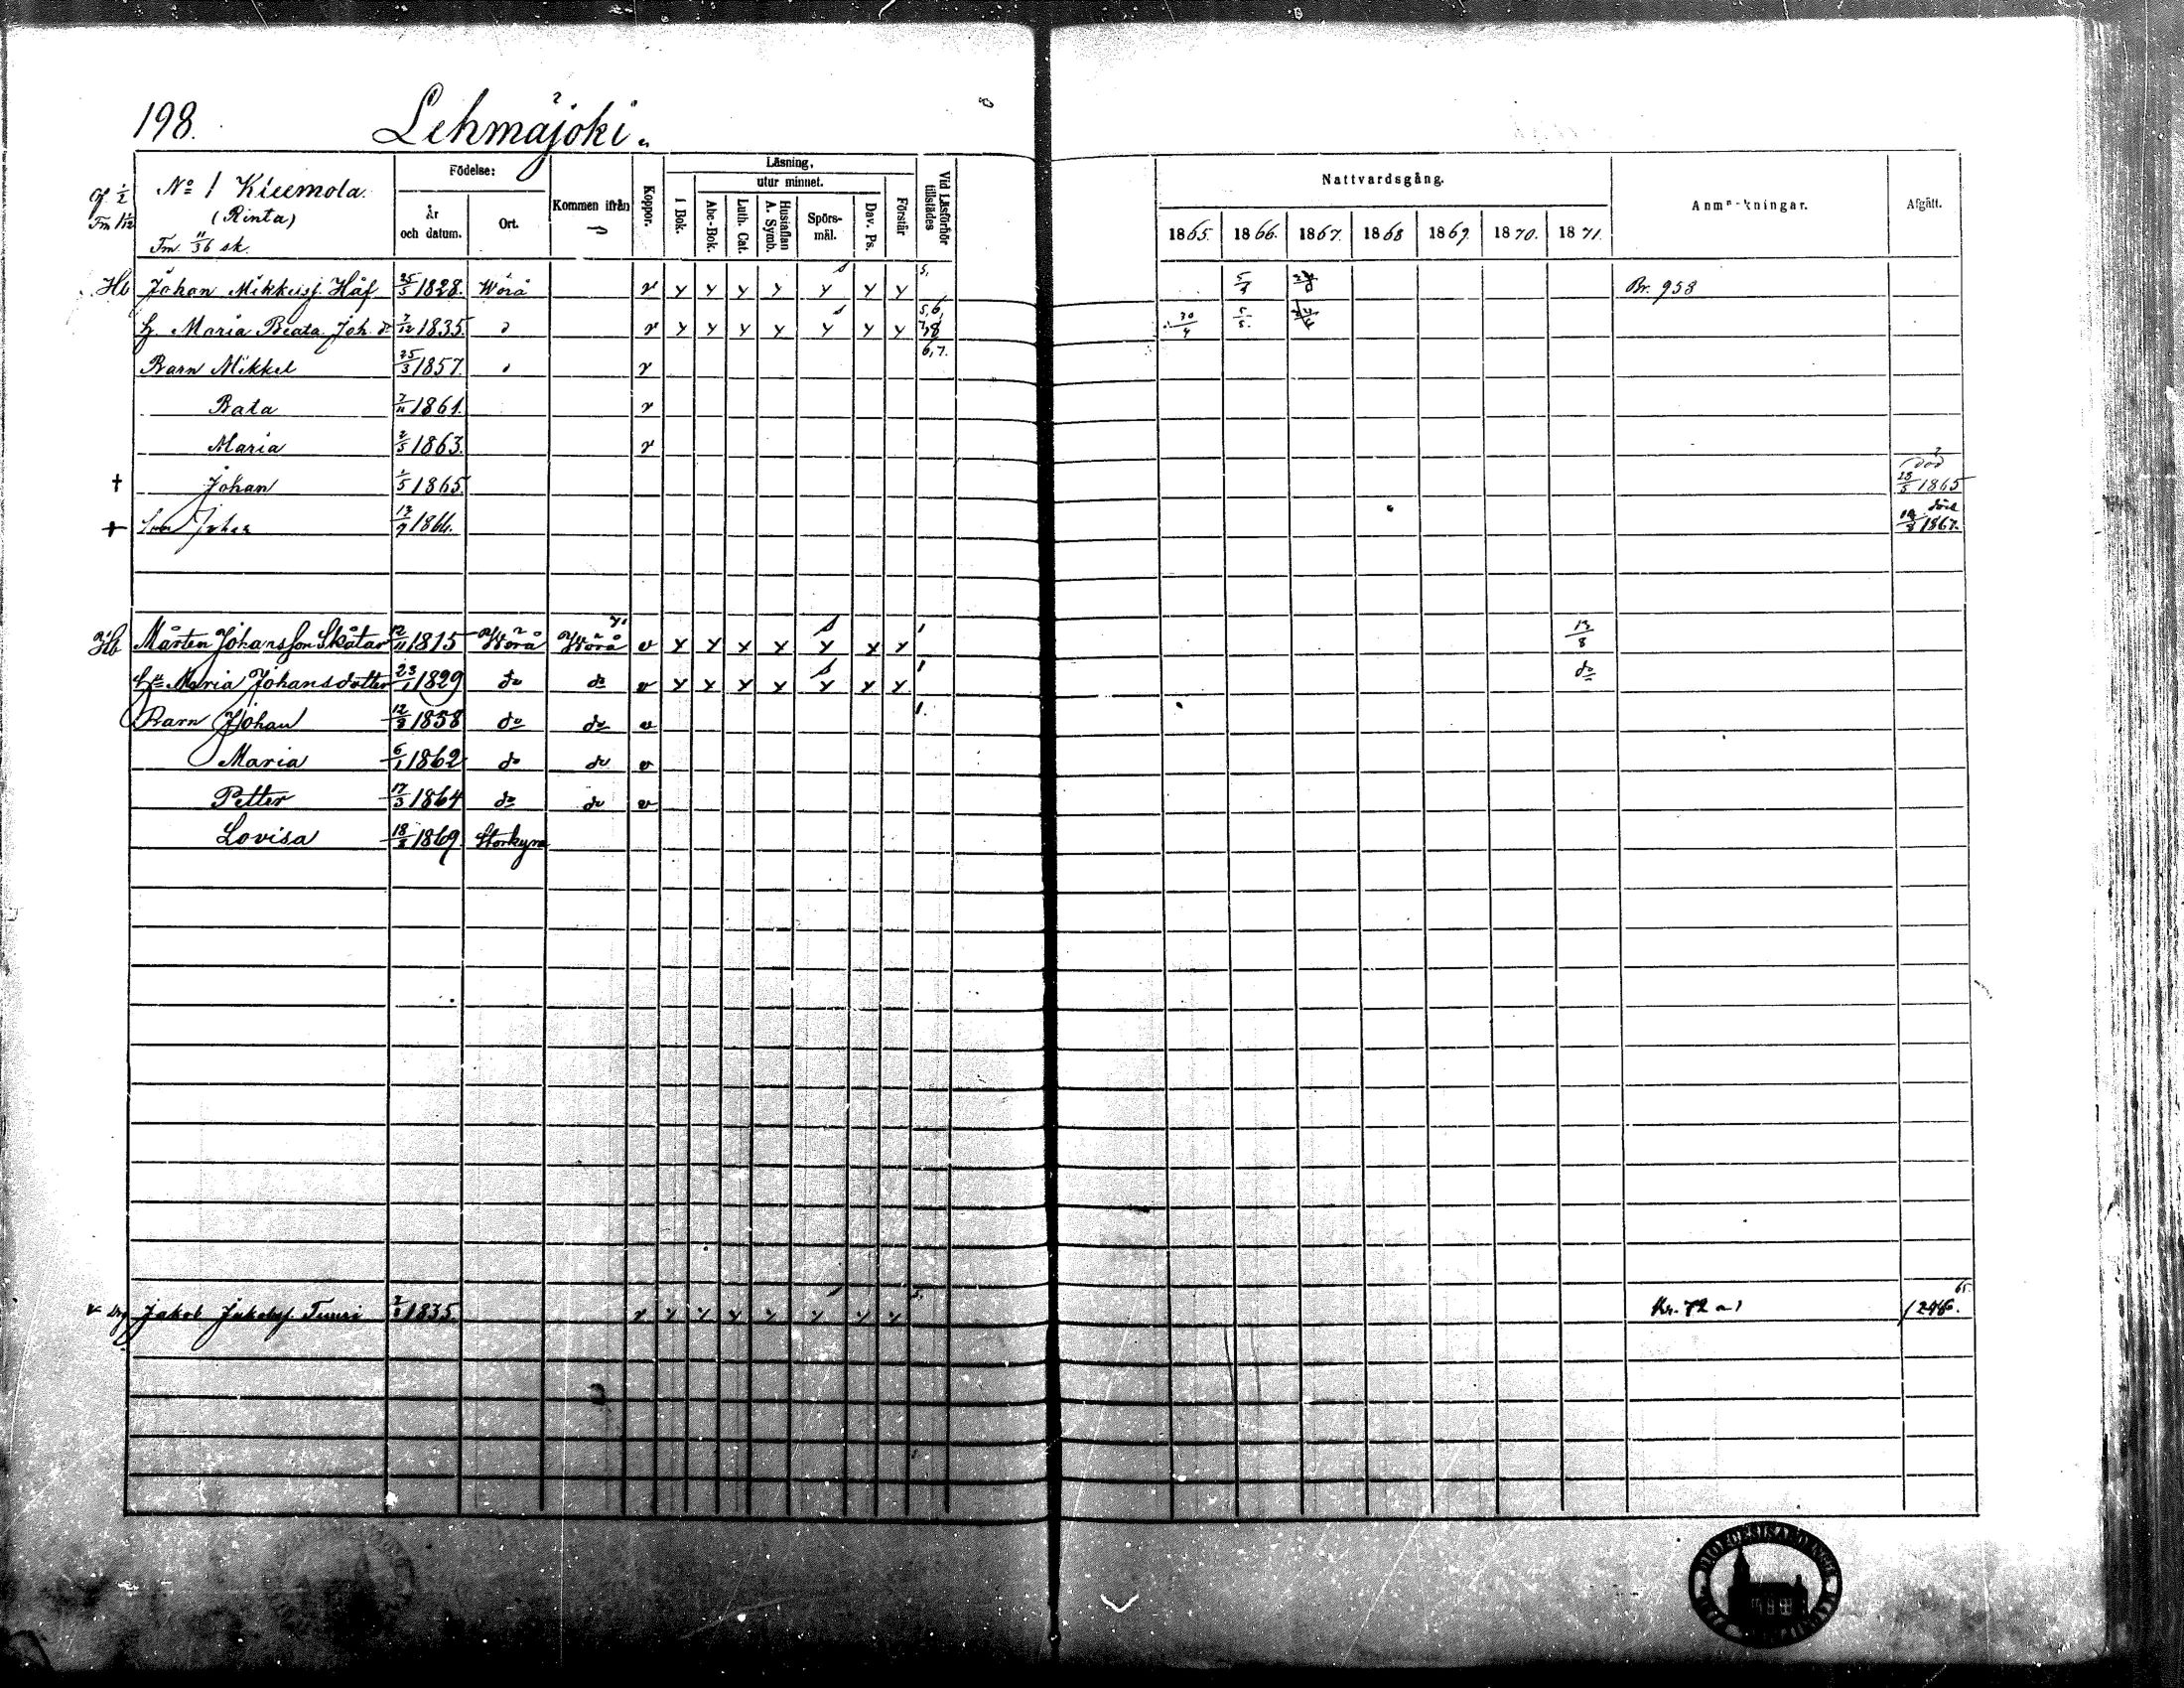 198. Lehmäjoki.
No 1 Kiëemola.
(Rinta)
Födelse:
År och datum.
Ort.
Kommen ifrån
Koppor.
Läsning,
utur minnet.
i Bok.
Abc-Bok.
Luth. Cat.
Hustaflan A. Symb.
Spörsmål.
Dav. Ps.
Förstår
Vid Läsförhör tillstädes
Nattvardsgång.
1865. 1866. 1867. 1868 1869. 1870. 1871.
Anmärkningar.
Afgått.
Hb Johan Mikkelsf. Håf 25/5 1828. Wörå v y y y y y y y 5, 5/8 Br. 958
H. Maria Beata Joh. dr 7/12 1835. d v y y y y y y y 5,6, 7,8 30/4 5/8
Barn Mikkel 25/3 1857. v 6,7.
Bata 7/11 1861. v
Maria 2/5 1863. v
† Johan 1/5 1865 död 28/5 1865
† Son Johan 13/9 1866. död 1867.
Hb Mårten Johansson Skåtar 12/11 1815 Wörå Wörå v y y y y y y y 1 13/8
Hu Maria Johansdotter 23/1 1829 do do v y y y y y y y 1 do
Barn Johan 12/8 1858 do do v 1.
Maria 6/1 1862 do do v
Petter 17/3 1864 do do v
Lovisa 18/8 1869. Storkyro
Jakob Jakobsf. Tuuri 1835. v y y y y y y y 5. 65.